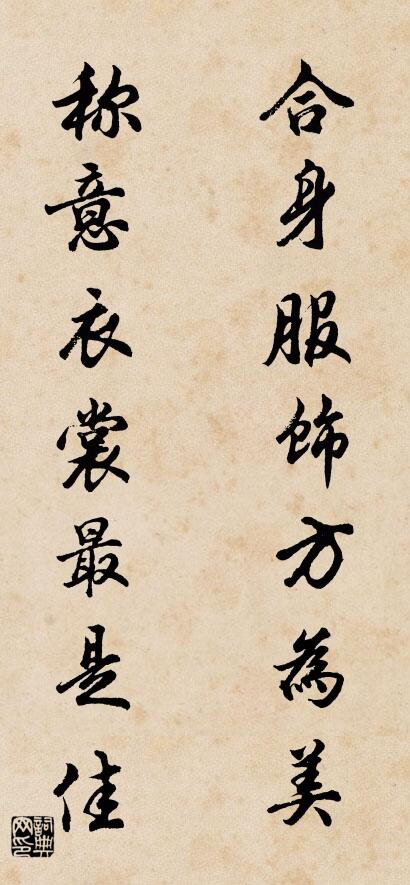 合身服饰方為美
称意衣裳最是佳
詞典网印